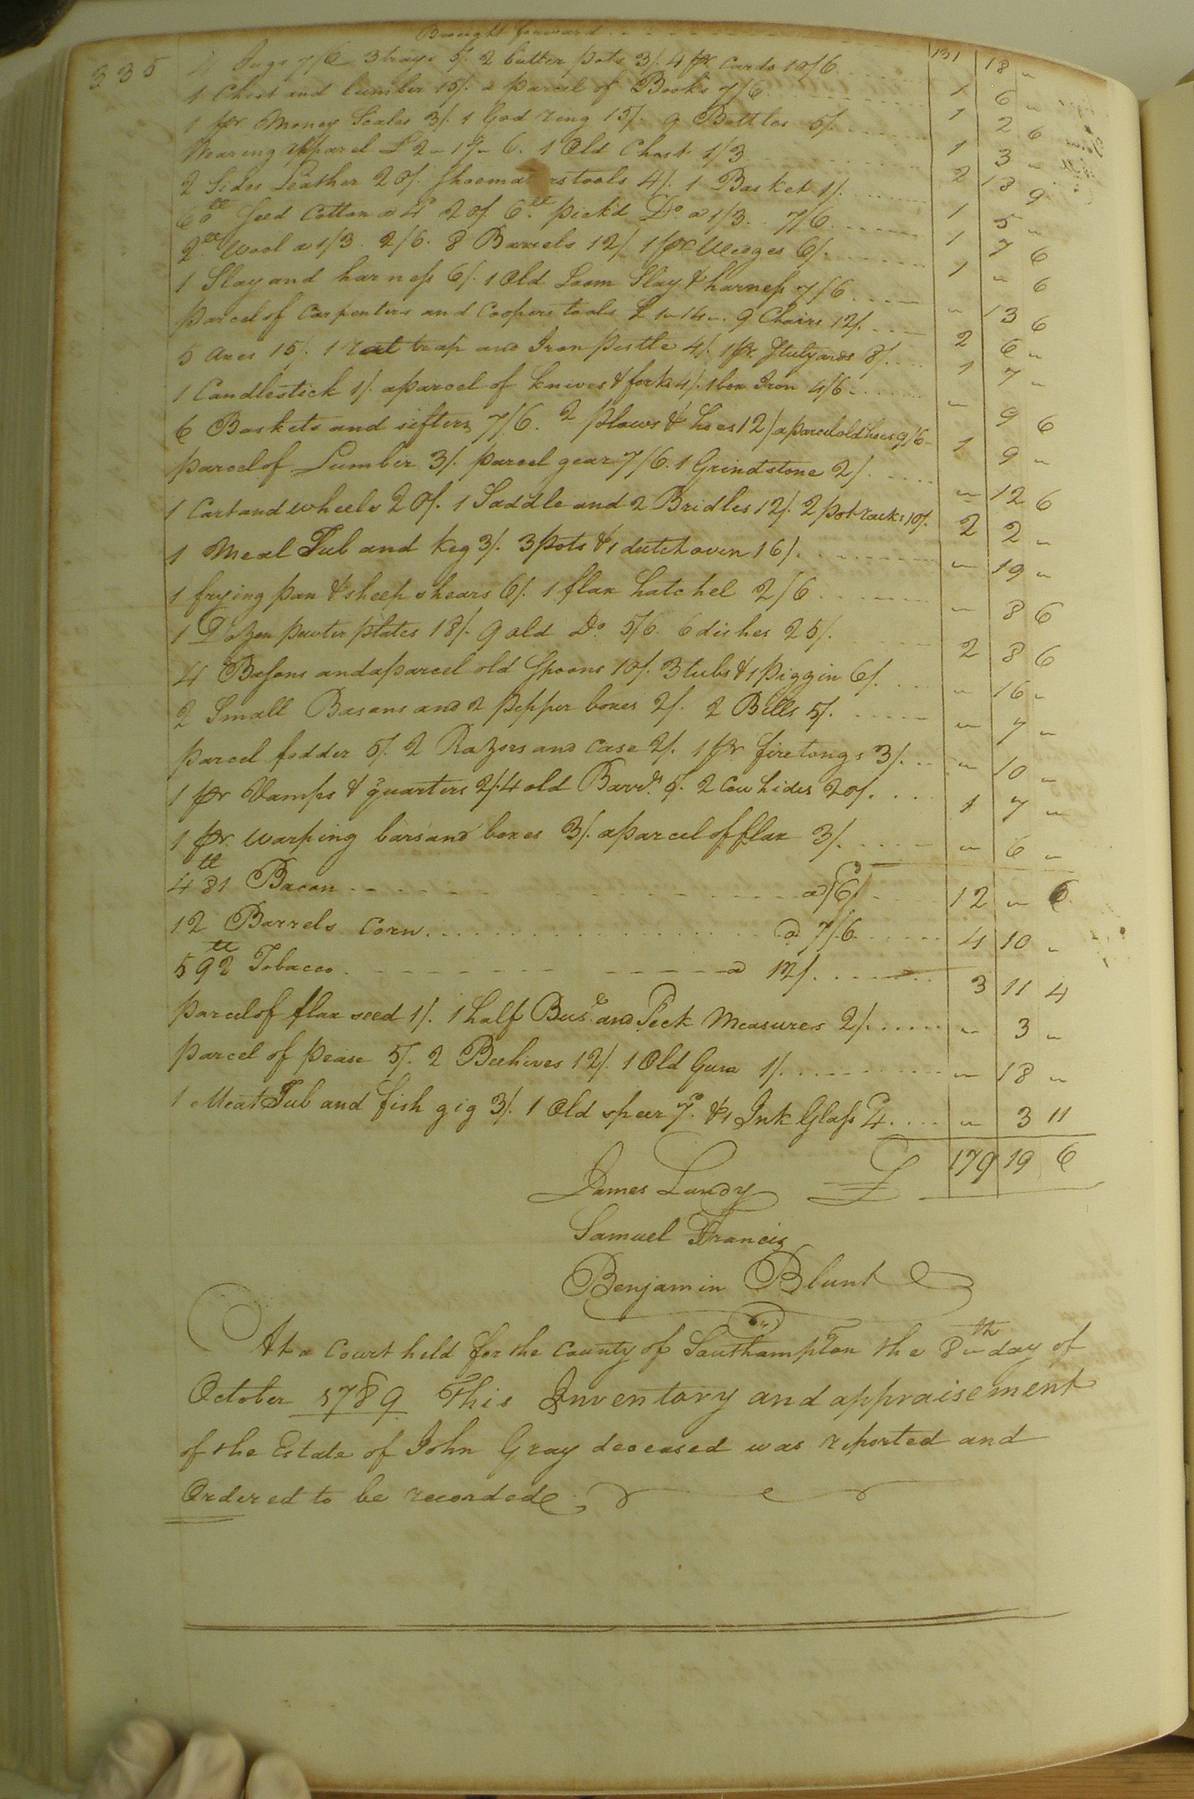 335
Brought forward 131 18 "
Jugs 7/6 3 trays 5/. 2 butter pots 3/. 4 pr Cards 10/6 1 6 "
1 Chest and lumber 15/. a parcel of Books 7/6 1 2 6
1 pr. Money Scales 3/. 1 God ring 15/. 9 Bottles 5/. 1 3 "
Wearing apparel £ 2 - 17 - 6. 1 Old Chest 1/3 2 18 9
2 Sides Leather 20/. Shoemakers tools 4/. 1 Basket 1/. 1 5 "
60 lb Seed Cotton a 4d 20/. 6 lb pick'd Do a 1/3. 7/6 1 7 6
2 lb Wool a 1/3 2/6. 8 Barrels 12/. 1 pr Wedges 6/. 1 " 6
1 Slay and harness 6/. 1 Old Loom Slay & harness 7/6 " 13 6
parcel of Carpenters and Coopers tools £ 1-14-. 9 Chairs 12/. 2 6 "
5 Axes 15/. 1 rat trap and Iron pestle 4/. 1 pr. Stilyards 8/. 1 7 "
1 Candlestick 1/. a parcel of knives & forks 4/. 1 box Iron 4/6 " 9 6
6 Baskets and sifters 7/6. 2 plows & hoes 12/ a parcel old hoes 9/6 1 9 "
parcel of Lumber 3/. parcel gear 7/6. 1 Grindstone 2/. " 12 6
1 Cart and wheels 20/. 1 Saddle and 2 Bridles 12/. 2 pot racks 10/. 2 2 "
1 Meal Tub and keg 3/. 3 pots & 1 dutch oven 16/. " 19 "
1 frying pan & sheep shears 6/. 1 flax hatchel 2/6 " 8 6
1 Dozen pewter plates 18/. 9 old Do 5/6. 6 dishes 25/. 2 8 6
4 Basons and a parcel old Spoons 10/. 3 tubs & 1 piggin 6/. " 16 "
2 Small Basans and 2 pepper boxes 2/. 2 Bells 5/. " 7 "
parcel fodder 5/. 2 Razors and Case 2/. 1 pr fire tongs 3/. " 10 "
1 pr Vamps & quarters 2/. 4 old Barrs 5/. 2 Cow hides 20/. 1 7 "
1 pr. warping bars and boxes 3/. a parcel of flax 3/. " 6 "
481 lb Bacon a 6d 12 " 6
12 Barrels Corn a 7/6 4 10 "
592 lb Tobacco a 12/. 3 11 4
parcel of flax seed 1/. 1 half Bus. and Peck Measures 2/. " 3 "
parcel of pease 5/. 2 Beehives 12/. 1 Old Gun 1/. " 18 "
1 Meat Tub and fish gig 3/. 1 Old spear 7d & 1 Ink Glass 4d " 3 11
£ 179 19 6
James Lundy
Samuel Francis
Benjamin Blunt
At a Court held for the County of Southampton the 8th day of
October 1789 This Inventory and appraisement
of the Estate of John Gray deceased was reported and
Ordered to be recorded